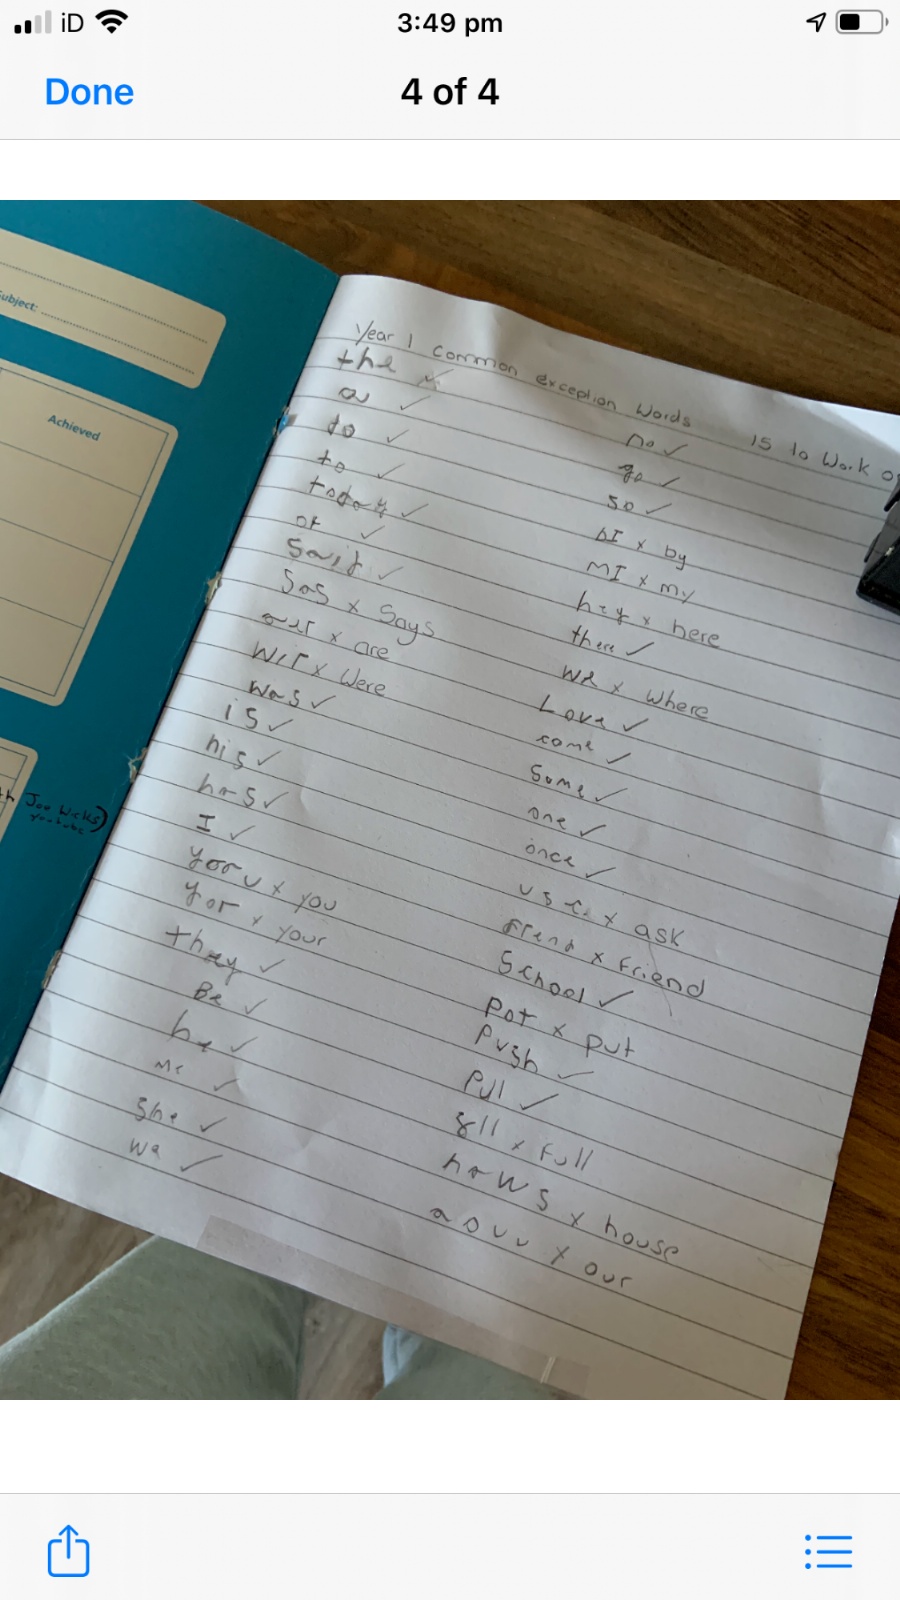 iD
3:49 pm
Done
4 of 4
Subject:
Achieved
Joe Wicks)
youtube
Year 1 common exception words 15 to work o
the ✓
a ✓
do ✓
to ✓
today ✓
of ✓
said ✓
Sas x Says
our x are
Wir x Were
was ✓
is ✓
his ✓
has ✓
I ✓
yoru x you
yor x your
they ✓
Be ✓
he ✓
Me ✓
She ✓
We ✓
no ✓
go ✓
so ✓
bI x by
MI x my
hey x here
there ✓
We x where
Love ✓
come ✓
Some ✓
one ✓
once ✓
x ask
frend x friend
School ✓
Pot x put
Push ✓
Pull ✓
x full
hows x house
x our